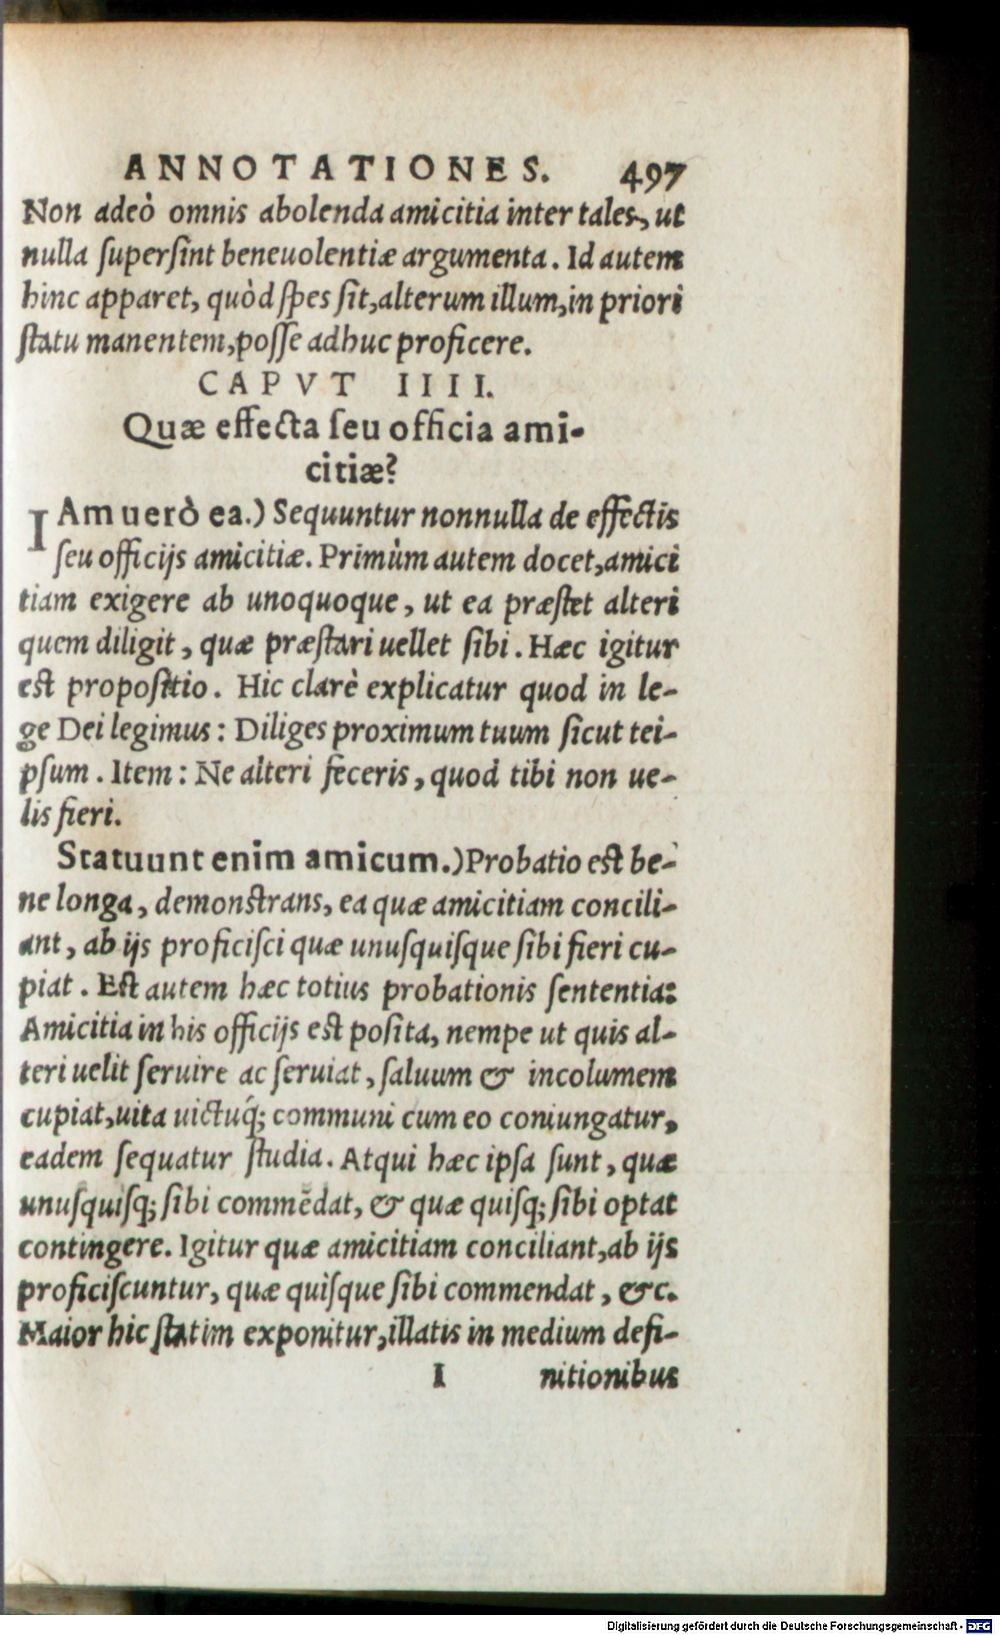 ANNOTATIONES. 497
Non adeò omnis abolenda amicitia inter tales, ut
nulla ſuperſint beneuolentiæ argumenta. Id autem
hinc apparet, quòd ſpes ſit, alterum illum, in priori
ſtatu manentem, poſſe adhuc proficere.
CAPVT IIII.
Quæ effecta ſeu officia ami-
citiæ?
IAm uerò ea.) Sequuntur nonnulla de effectis
ſeu officijs amicitiæ. Primùm autem docet, amici
tiam exigere ab unoquoque, ut ea præſtet alteri
quem diligit, quæ præſtari uellet ſibi. Hæc igitur
eſt propoſitio. Hic clarè explicatur quod in le-
ge Dei legimus: Diliges proximum tuum ſicut tei-
pſum. Item: Ne alteri feceris, quod tibi non ue-
lis fieri.
Statuunt enim amicum.) Probatio eſt be-
ne longa, demonſtrans, ea quæ amicitiam concili-
ant, ab ijs proficiſci quæ unuſquiſque ſibi fieri cu-
piat. Eſt autem hæc totius probationis ſententia:
Amicitia in his officijs eſt poſita, nempe ut quis al-
teri uelit ſeruire ac ſeruiat, ſaluum & incolumem
cupiat, uita uictuq́; communi cum eo coniungatur,
eadem ſequatur ſtudia. Atqui hæc ipſa ſunt, quæ
unuſquiſq; ſibi commẽdat, & quæ quiſq; ſibi optat
contingere. Igitur quæ amicitiam conciliant, ab ijs
proficiſcuntur, quæ quiſque ſibi commendat, &c.
Maior hic ſtatim exponitur, illatis in medium defi-
I nitionibus
Digitalisierung gefördert durch die Deutsche Forschungsgemeinschaft - DFG